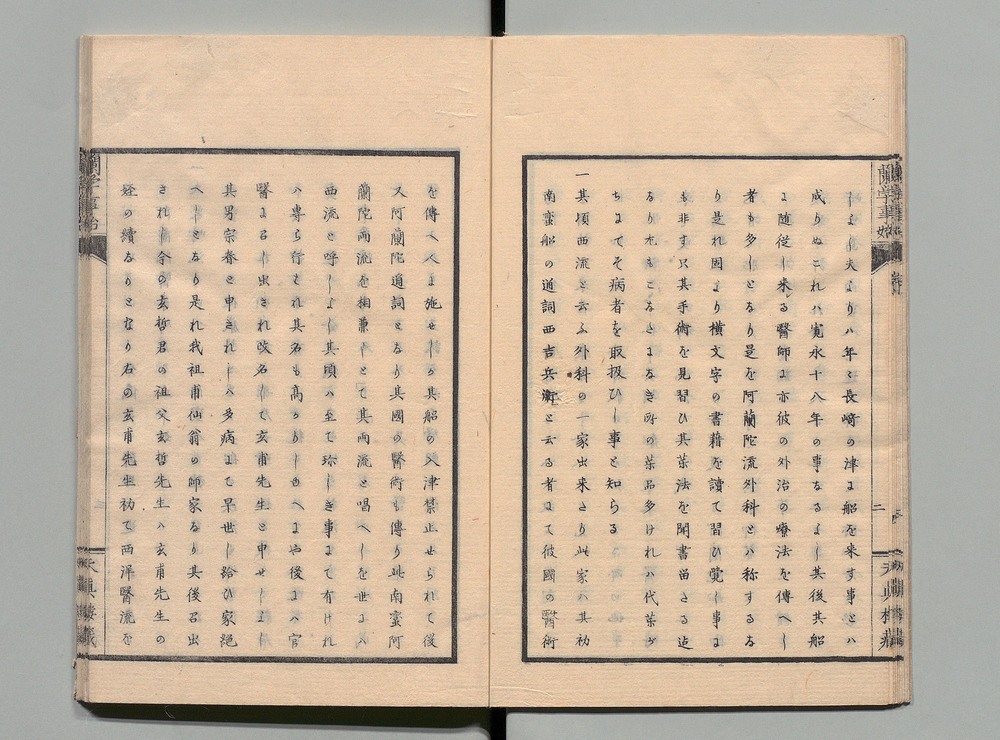 しよし夫よりハ年々長﨑の津ま船を来す事とハ
成りぬこれハ寛永十八年の事なるよし其後其船
ま随従し来る醫師ま亦彼の外治の療法を傳へし
者も多しとなり是を阿蘭陀流外科とハ称するな
り是れ固より横文字の書籍を讀て習ひ覺し事ま
も非す只其手術を見習ひ其薬法を聞書留さる迄
なり尤もこなさまなき所の薬品多けれハ代薬か
ちまてそ病者を取扱ひし事と知らる
一其頃西流と云ふ外科の一家出来さり此家ハ其初
南蛮船の通詞西吉兵衛と云る者まて彼國の醫術
を傳へ人ま施せしか其船の入津禁止せられて後
又阿蘭陀通詞となり其國の醫術も傳り此南蛮阿
蘭陀両流を相兼しとて其両流と唱へしを世ま
西流と呼しよし其頃ハ至て珎しき事まて有けれ
ハ専ら行され其名も高かりしゆへまや後まハ官
醫ま召し出され改名して玄甫先生と申せしよし
其男宗春と申されしハ多病まて早世し給ひ家絶
へしとなり是れ我祖甫仙翁の師家なり其後召出
されし今の玄哲君の祖父玄哲先生ハ玄甫先生の
姪の續なりとなり右の玄甫先生初て西洋醫流を
蘭学事始
二
天真楼蔵